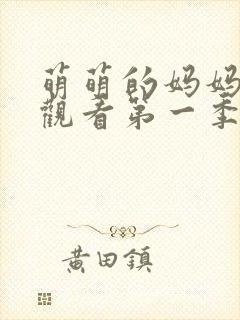 萌萌的妈妈
觀看第一季
黄田鎮